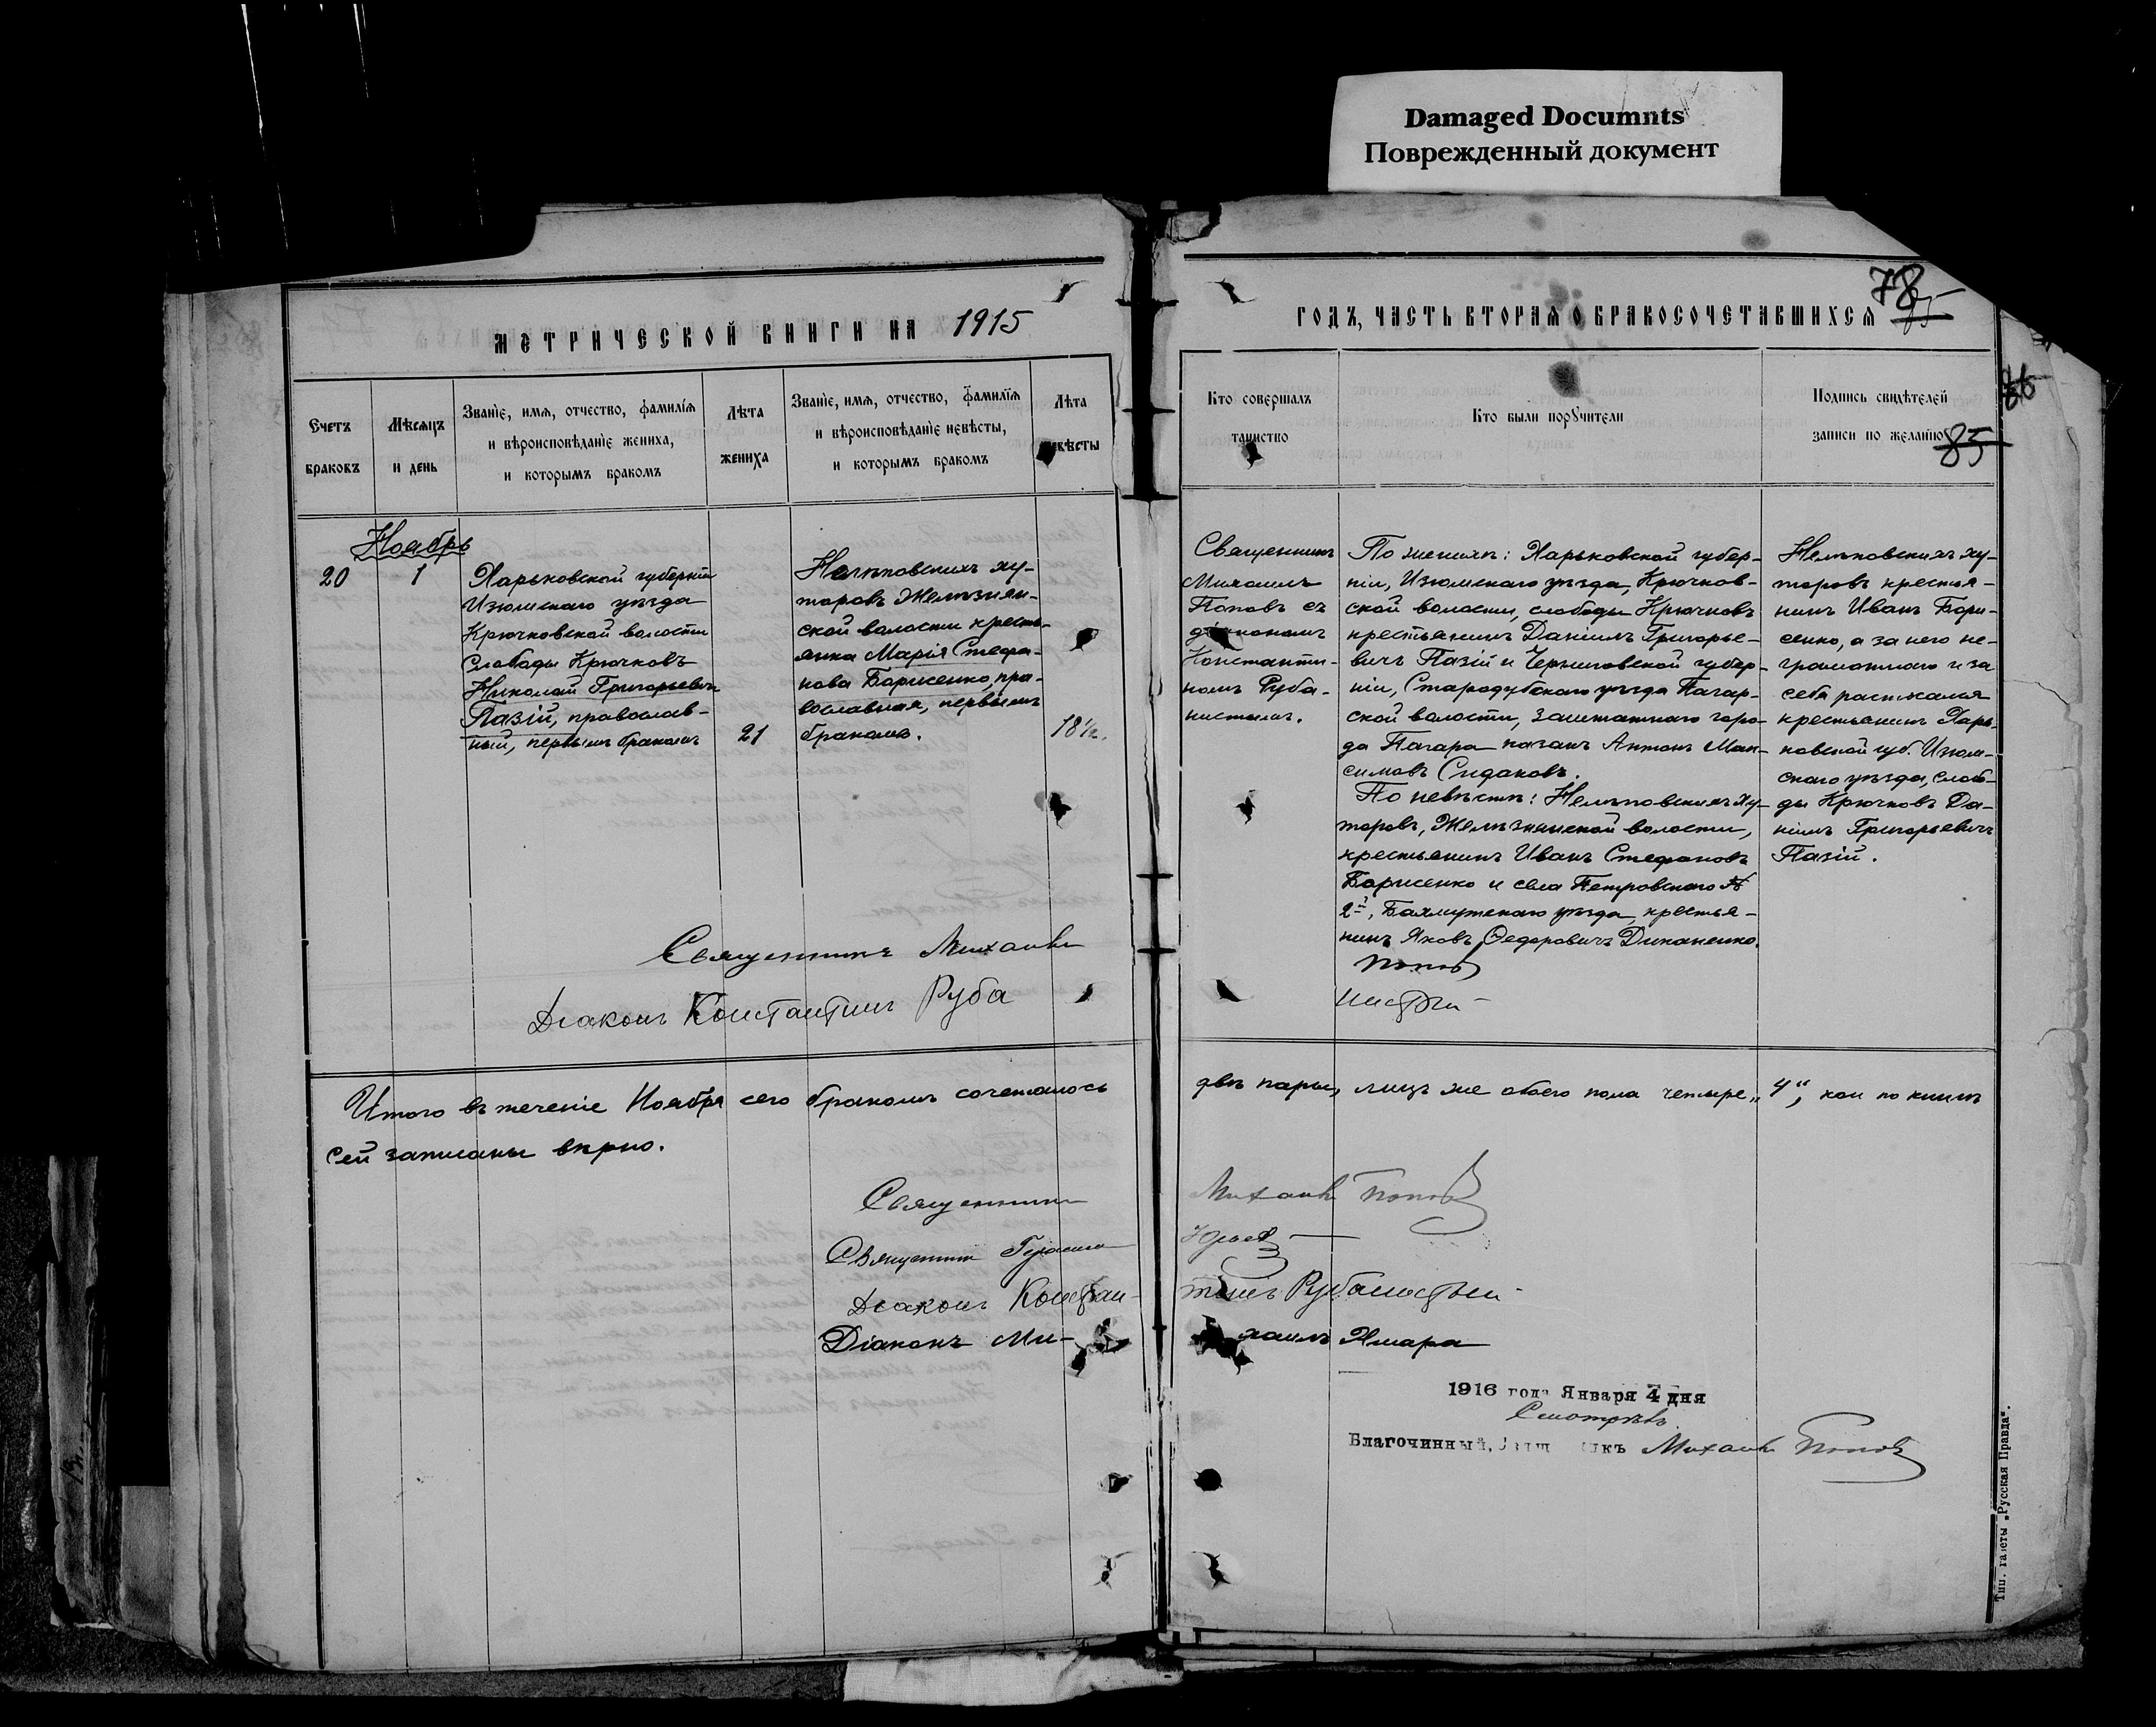 Damaged Documnts
Поврежденный документ
78
85
МЕТРИЧЕСКОЙ КНИГИ НА 1915
ГОДЪ, ЧАСТЬ ВТОРАЯ О БРАКОСОЧЕТАВШИХСЯ
Счетъ
браковъ
Мѣсяцъ
и день
Званіе, имя, отчество, фамилія
и вѣроисповѣданіе жениха,
и которымъ бракомъ
Лѣта
жениха
Званіе, имя, отчество, фамилія
и вѣроисповѣданіе невѣсты,
и которымъ бракомъ
Лѣта
невѣсты
Кто совершалъ
таинство
Кто были поручители
Подпись свидѣтелей
записи по желанію
Ноябрь
20
1
Харьковской губерніи
Изюмскаго уѣзда
Крючковской волости
Слободы Крючковъ
Николай Григорьевичъ
Пазій, православ-
ный, первымъ бракомъ
21
Нелѣповскихъ ху-
торовъ Желѣзнян-
ской волости кресть-
янка Марія Стефа-
нова Борисенко, пра-
вославная, первымъ
бракомъ.
18½.
Священникъ
Михаилъ
Поповъ съ
діакономъ
Константи-
номъ Руба-
нистымъ.
По женихѣ: Харьковской губер-
ніи, Изюмскаго уѣзда, Крючков-
ской волости, слободы Крючковъ
крестьянинъ Даніилъ Григорье-
вичъ Пазій и Черниговской губер-
ніи, Стародубскаго уѣзда Погар-
ской волости, заштатнаго горо-
да Погара казакъ Антонъ Мак-
симовъ Сидаковъ.
По невѣстѣ: Нелѣповскихъ ху-
торовъ, Желѣзнянской волости,
крестьянинъ Иванъ Стефановъ
Борисенко и села Петровскаго №
2й, Бахмутскаго уѣзда, крестья-
нинъ Яковъ Федоровичъ Диканенко.
Нелѣповскихъ ху-
торовъ крестья-
нинъ Иванъ Бори-
сенко, а за него не-
грамотнаго и за
себя расписался
крестьянинъ Харь-
ковской губ. Изюм-
скаго уѣзда, слобо-
ды Крючковъ Да-
ніилъ Григорьевичъ
Пазій.
Священникъ Михаилъ Поповъ
Діаконъ Константинъ Руба нистый
Итого въ теченіе Ноября сего бракомъ сочеталось двѣ пары, лицъ же обоего пола четыре „4“, кои по книгѣ
сей записаны вѣрно.
Священникъ Михаилъ Поповъ
Священникъ
Діаконъ Констан- тинъ Рубанистый
Діаконъ Ми- хаилъ Яшара
1916 года Января 4 дня
Смотрѣлъ
Благочинный, Михаилъ Поповъ
Тип. газеты „Русская Правда“.